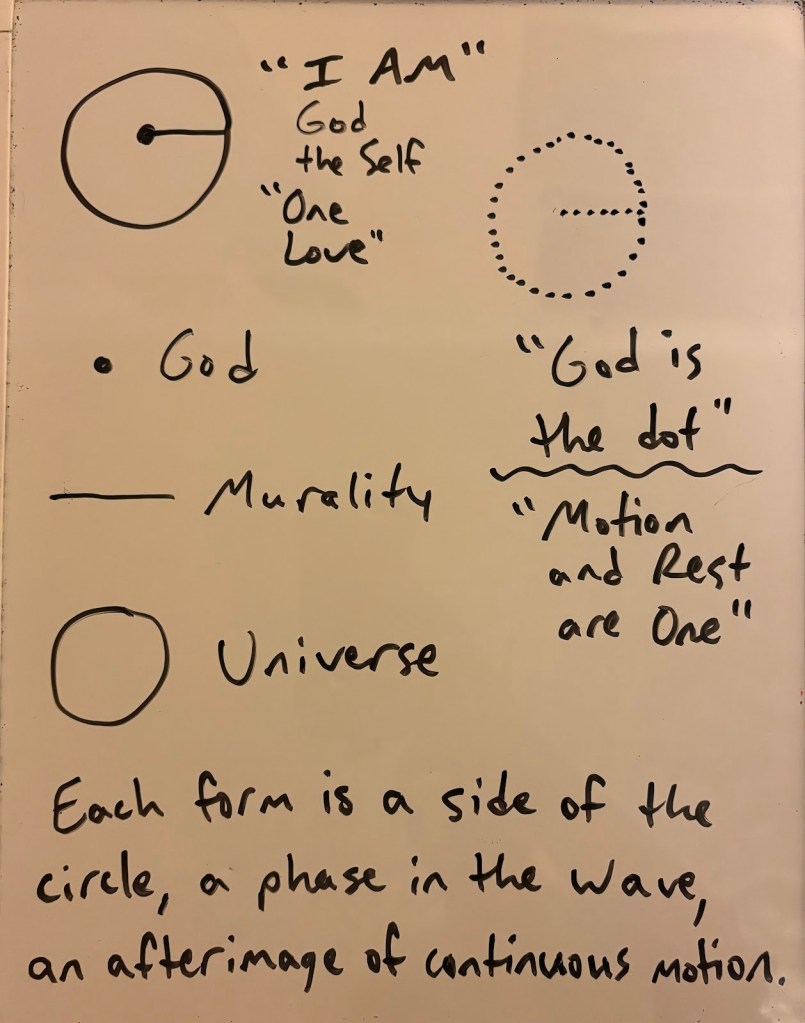 "I AM"
God
the Self
"One
Love"
God
"God is
the dot"
Murality
"Motion
and Rest
are One"
Universe
Each form is a side of the
circle, a phase in the wave,
an afterimage of continuous motion.